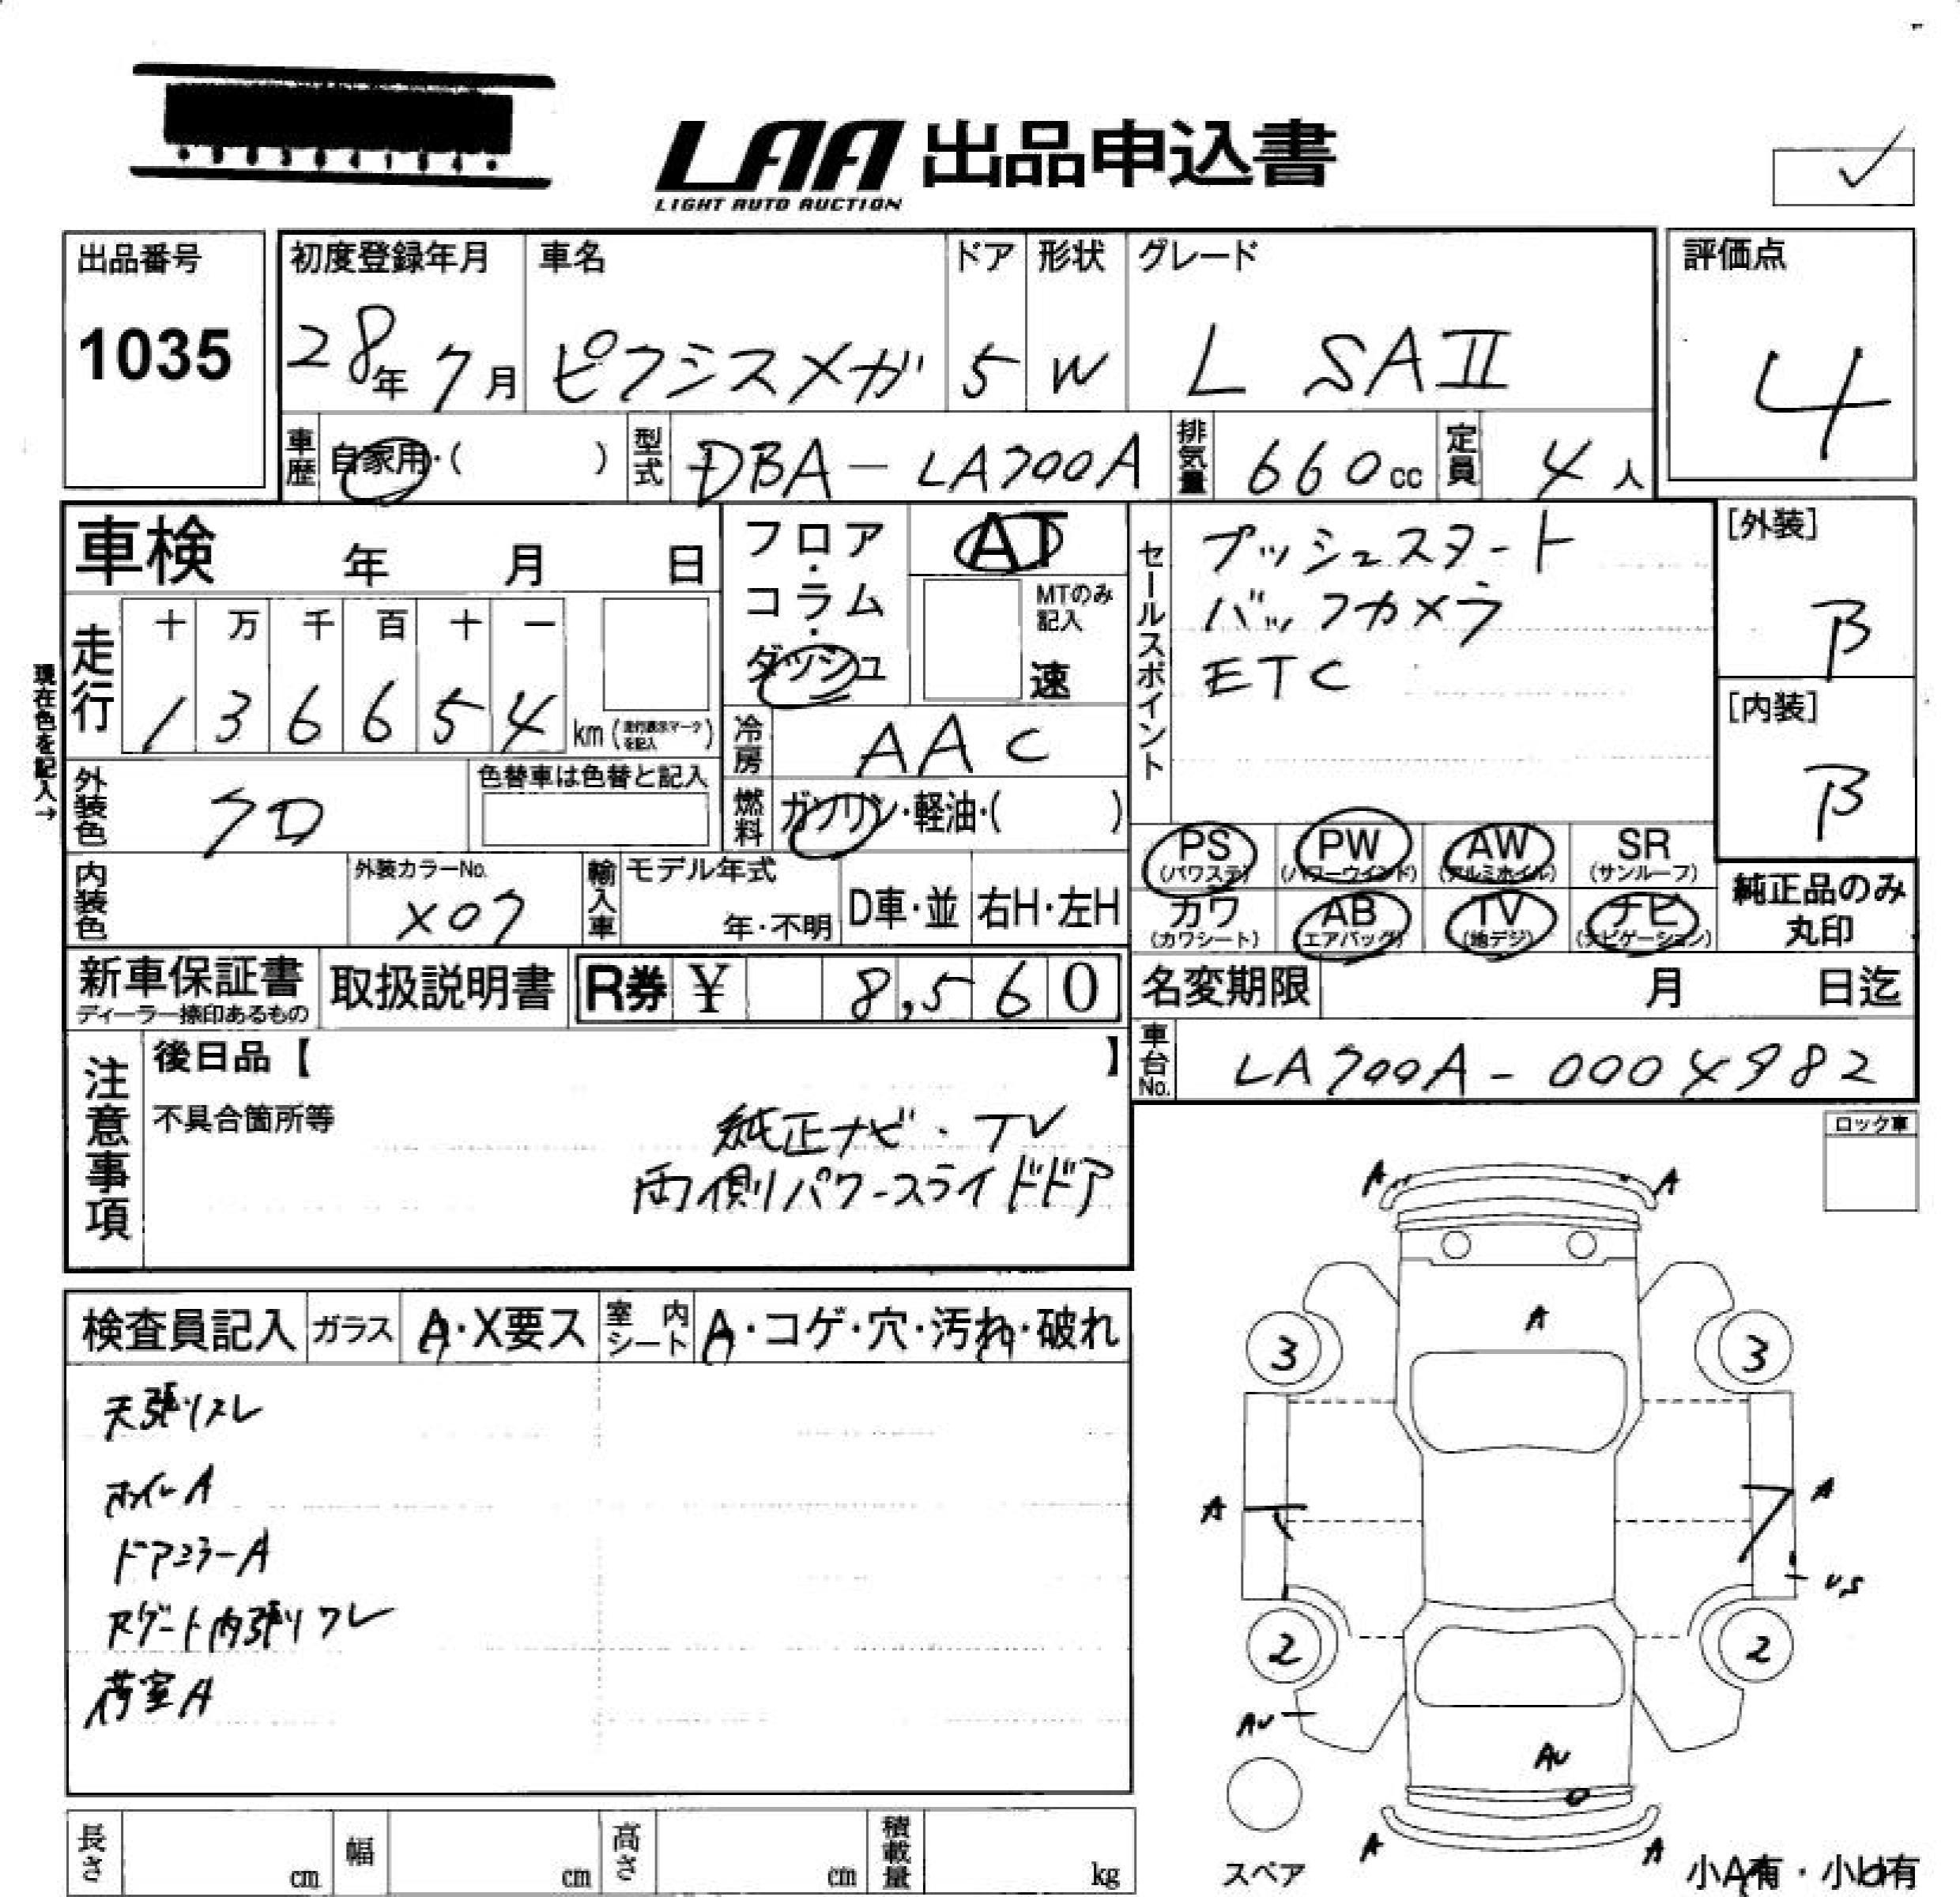 LAA 出品申込書
LIGHT AUTO AUCTION
出品番号
1035
初度登録年月
28年 7月
車名
ピクシスメガ
ドア
5
形状
W
グレード
L SAⅡ
評価点
4
車歴
自家用・( )
型式
DBA-LA700A
排気量
660cc
定員
4人
車検 年 月 日
走行
十 万 千 百 十 一
1 3 6 6 5 4 km (走行表示マークを記入)
現在色を記入→
フロア・
コラム・
ダッシュ
AT
MTのみ
記入
速
冷房
AAC
燃料
ガソリン・軽油・( )
セールスポイント
プッシュスタート
バックカメラ
ETC
[外装]
B
[内装]
B
外装色
クロ
色替車は色替と記入
内装色
外装カラーNo.
X07
輸入車
モデル年式
年・不明
D車・並
右H・左H
PS
(パワステ)
PW
(パワーウインド)
AW
(アルミホイル)
SR
(サンルーフ)
カワ
(カワシート)
AB
(エアバッグ)
TV
(地デジ)
ナビ
(ナビゲーション)
純正品のみ
丸印
新車保証書
ディーラー捺印あるもの
取扱説明書
R券 ¥ 8,560
名変期限 月 日迄
車台No.
LA700A-0004982
注意事項
後日品【 】
不具合箇所等
純正ナビ・TV
両側パワースライドドア
ロック車
検査員記入
ガラス
A・X要ス
室内シート
A・コゲ・穴・汚れ・破れ
天張りスレ
ホイルA
ドアミラーA
Rゲート内張りワレ
荷室A
A
A
A
3
3
A
A
US
2
2
AU
AU
A
A
スペア
小A有・小U有
長さ cm
幅 cm
高さ cm
積載量 kg